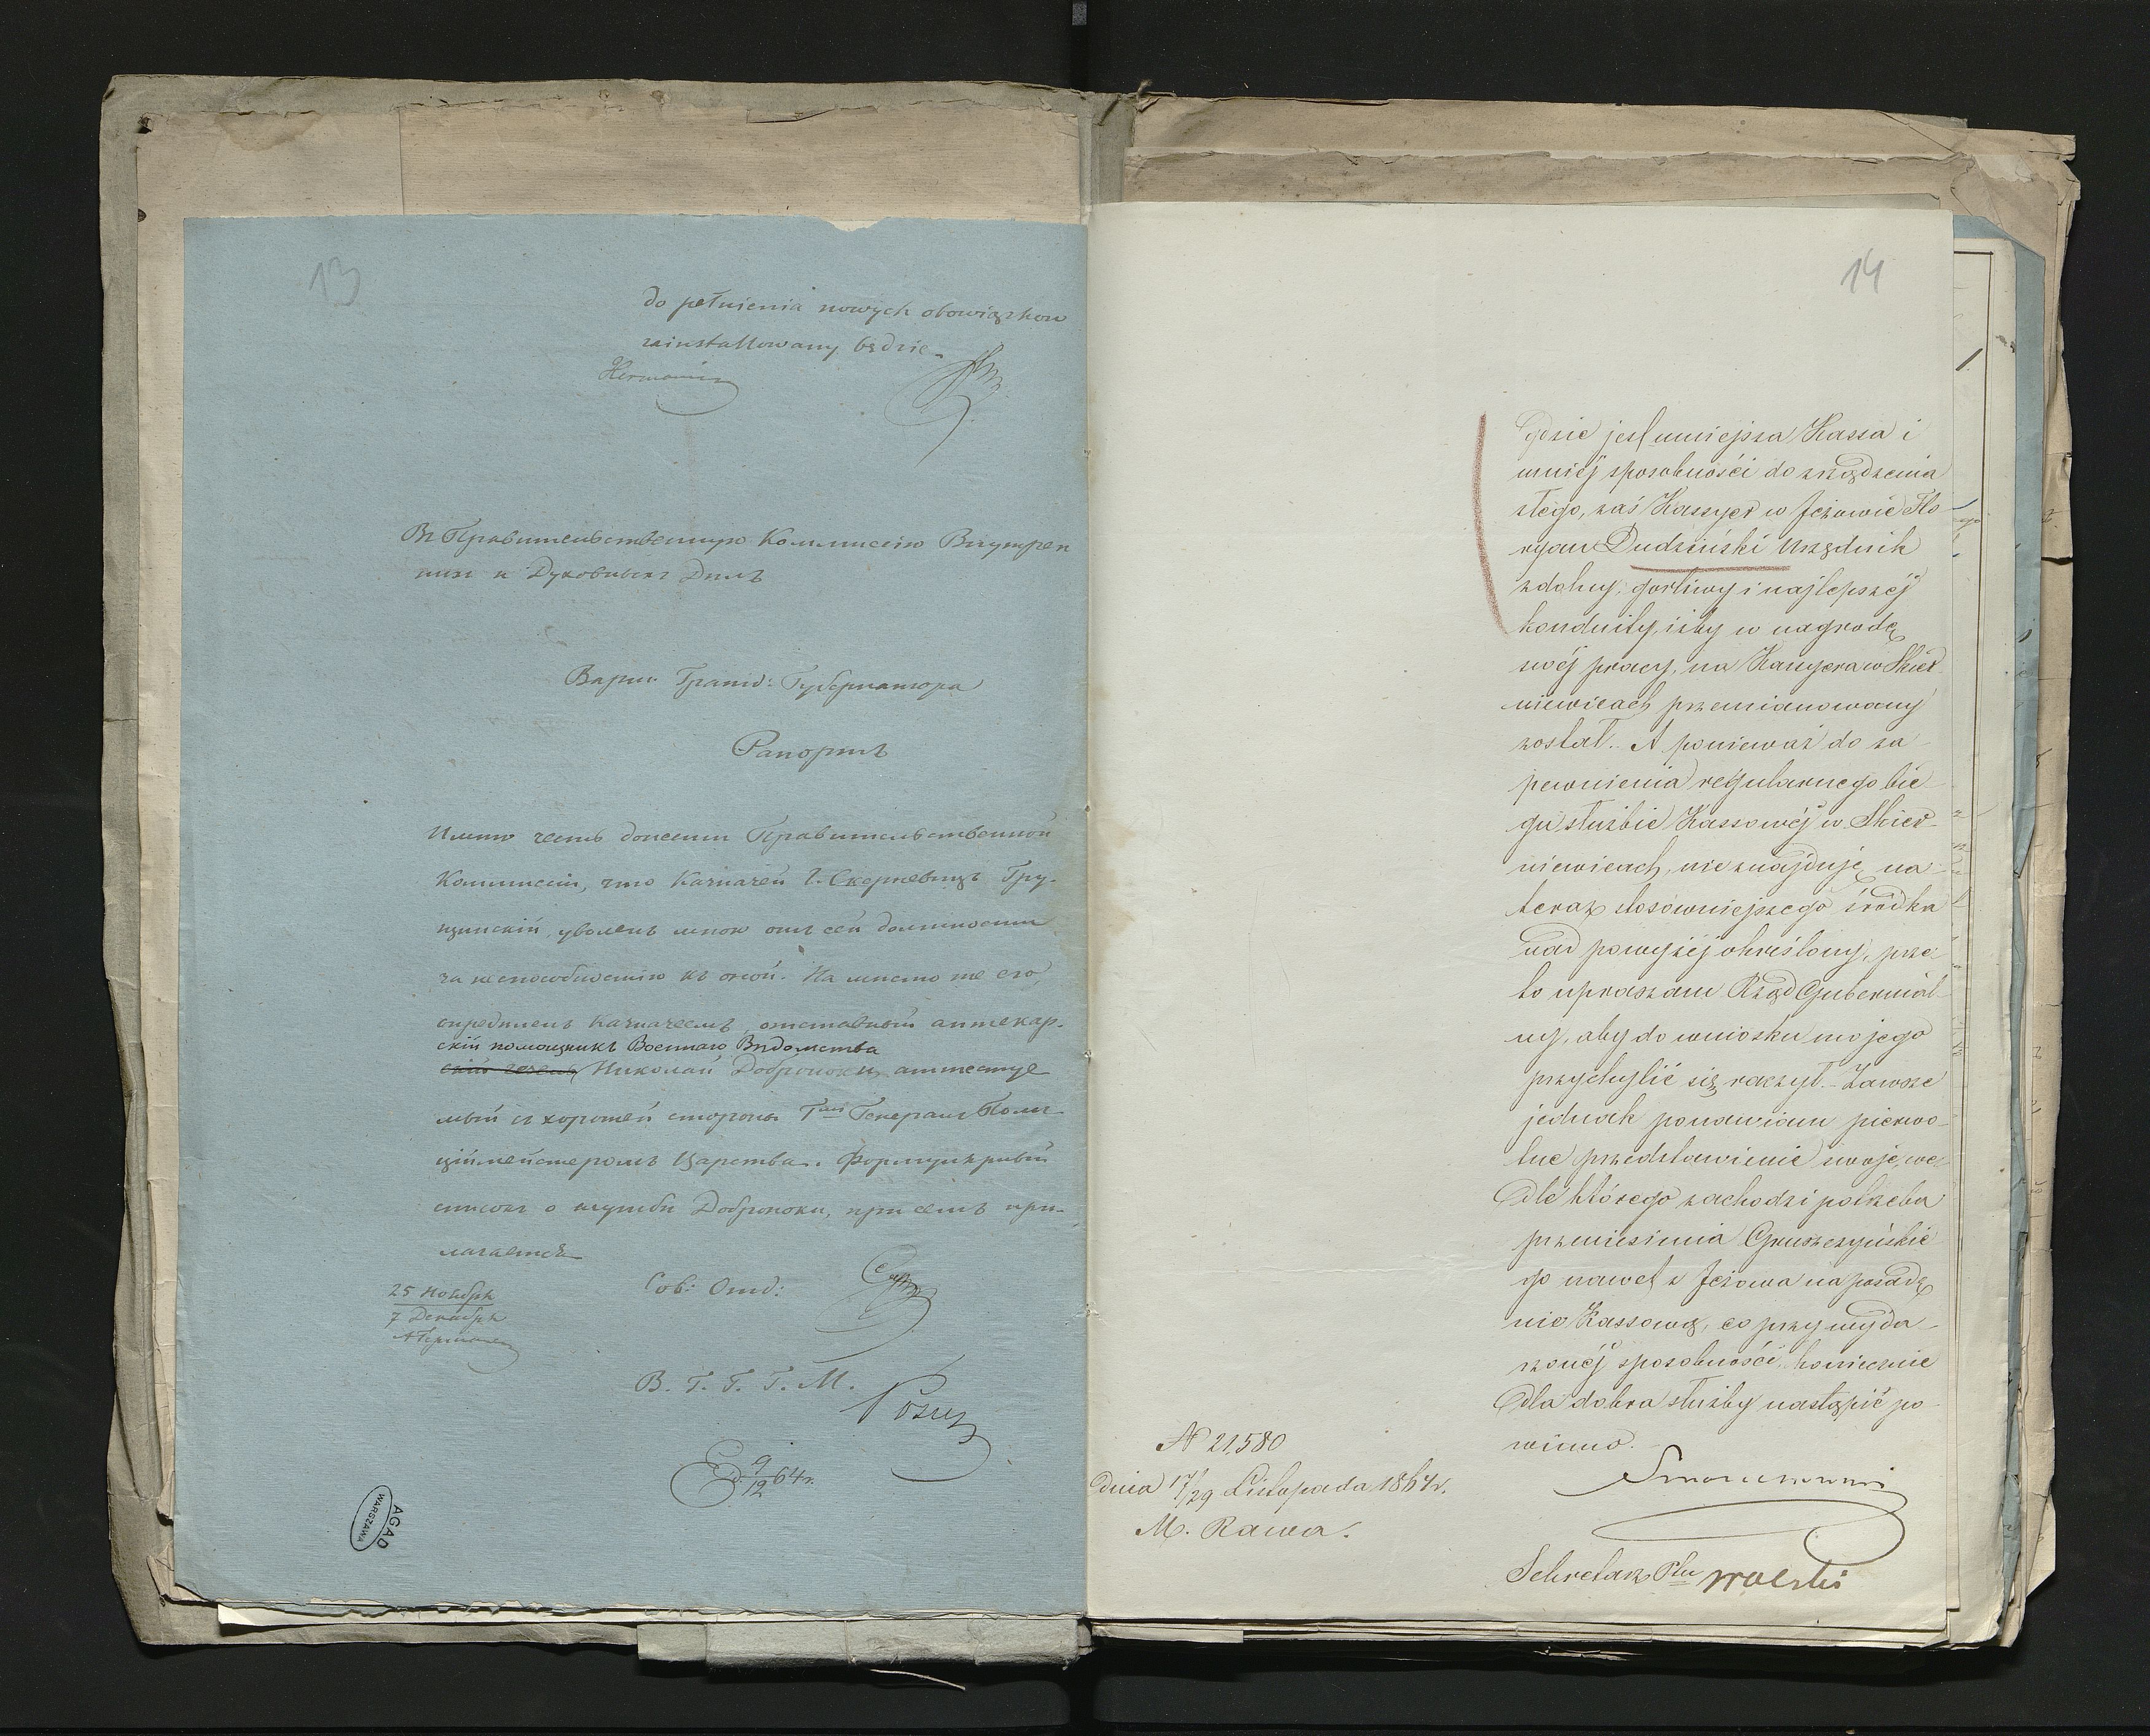 13
do pełnienia nowych obowiązkow
zainstallowany będzie.
Hermanin
Въ Правительственную Коммиссію Внутрен
нихъ и Духовныхъ Дѣлъ
Варш. Гражд: Губернатора
Рапортъ
Имѣю честь донести Правительственной
Коммиссіи, что Казначей г. Скерневицъ Гру-
щинскій, уволенъ мною отъ сей должности
за неспособностію къ оной. На мѣсто же его,
опредѣленъ Казначеемъ, отставный аптекар-
скій помощникъ Военнаго Вѣдомства
Николай Доброноки, аттестуе
мый съ хорошей стороны Гмъ Генералъ Поли-
ційместеромъ Царства. Формулярный
списокъ о службѣ Доброноки, при семъ при-
лагается
25 Ноября
7 Декабря
Сов: Отд:
В. Г. Г. Г. М.
Ed. 9/12 64 r.
AGAD
WARSZAWA
14
gdzie jest mniejsza Kassa i
mniéj sposobności do zrządzenia
złego, zaś Kassyer w Jeżowie Flo
ryan Dudziński Urzędnik
zdolny, gorliwy i najlepszéj
konduity, iżby w nagrodę
swéj pracy, na Kassyera w Skier
niewicach przemianowany
został. A ponieważ do za
pewnienia regularnego bie
gu służbie Kassowéj w Skier-
niewicach, nie znajduję na
teraz stosowniejszego środka
nad powyżéj określony, prze
to upraszam Rząd Gubernial
ny, aby do wniosku mojego
przychylić się raczył. Zawsze
jednak ponawiam pierwo-
tne przedstawienie swoje, we
dle którego zachodzi potrzeba
przeniesienia Gruszczyńskie
go nawet z Jeżowa na posadę
nie Kassową, co przy wyda
rzonéj sposobności koniecznie
dla dobra służby nastąpić po
winno.
N 21,580
dnia 17/29 Listopada 1864 r.
M. Rawa.
Sekretarz Ptu Wolski